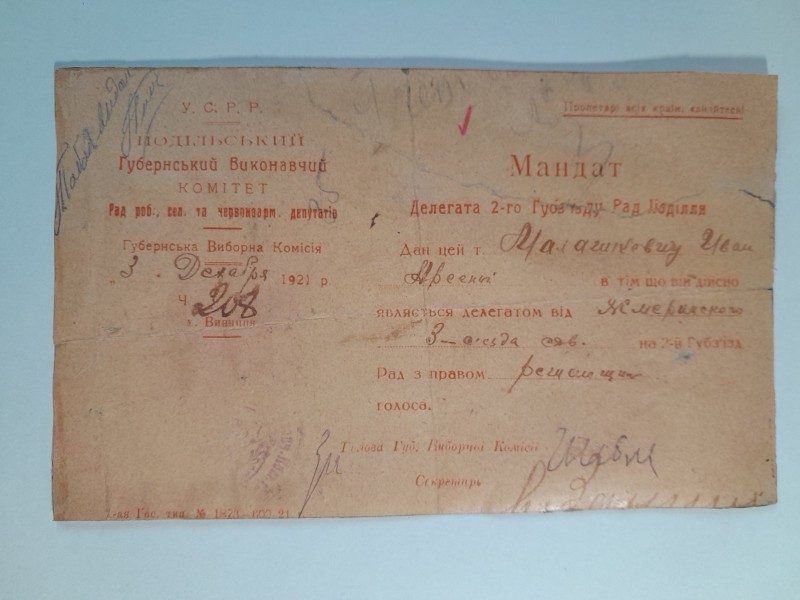 У. С. Р. Р.
ПОДІЛЬСЬКИЙ
Губернський Виконавчий
КОМІТЕТ
Рад роб., сел. та червоноарм. депутатів
Губернська Виборна Комісія
„ 3 „ Декабря 1921 р.
Ч 208
м. Винниця
Пролетарі всіх країн, єднайтесь!
Мандат
Делегата 2-го Губз'їзду Рад Поділля
Дан цей т. Малашкевичу Иван
Арсень в тім що він дійсно
являється делегатом від Жмеринского
3-съезда сов. на 2-й Губз'їзд
Рад з правом решающим
голоса.
Голова Губ. Виборчої Комісії
Секретарь
Гос. тип. № 1823—600. 21